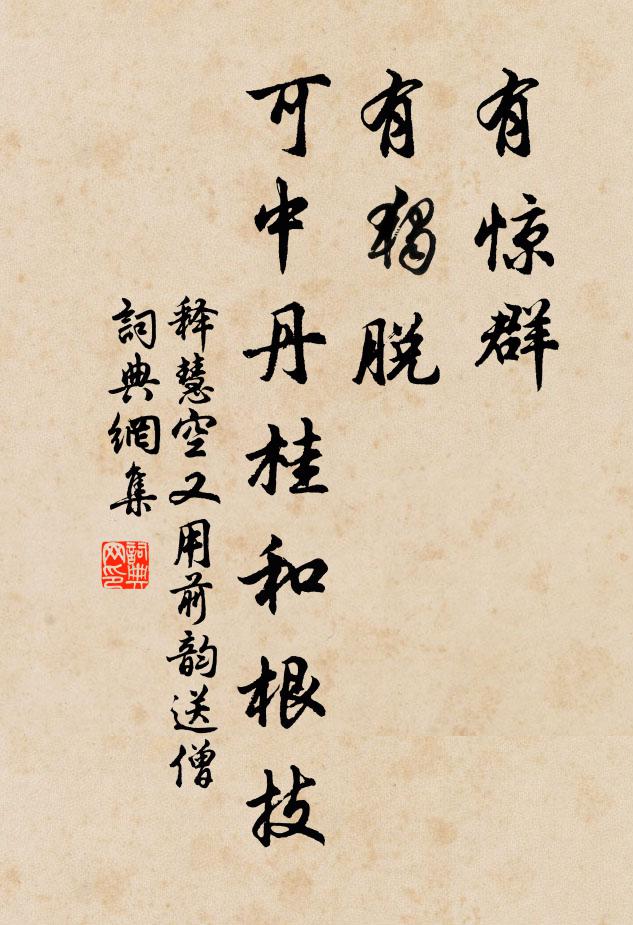 有惊群
有獨脱
可中丹桂和根技
释慧空又用前韵送僧
詞典網集
詞典网印